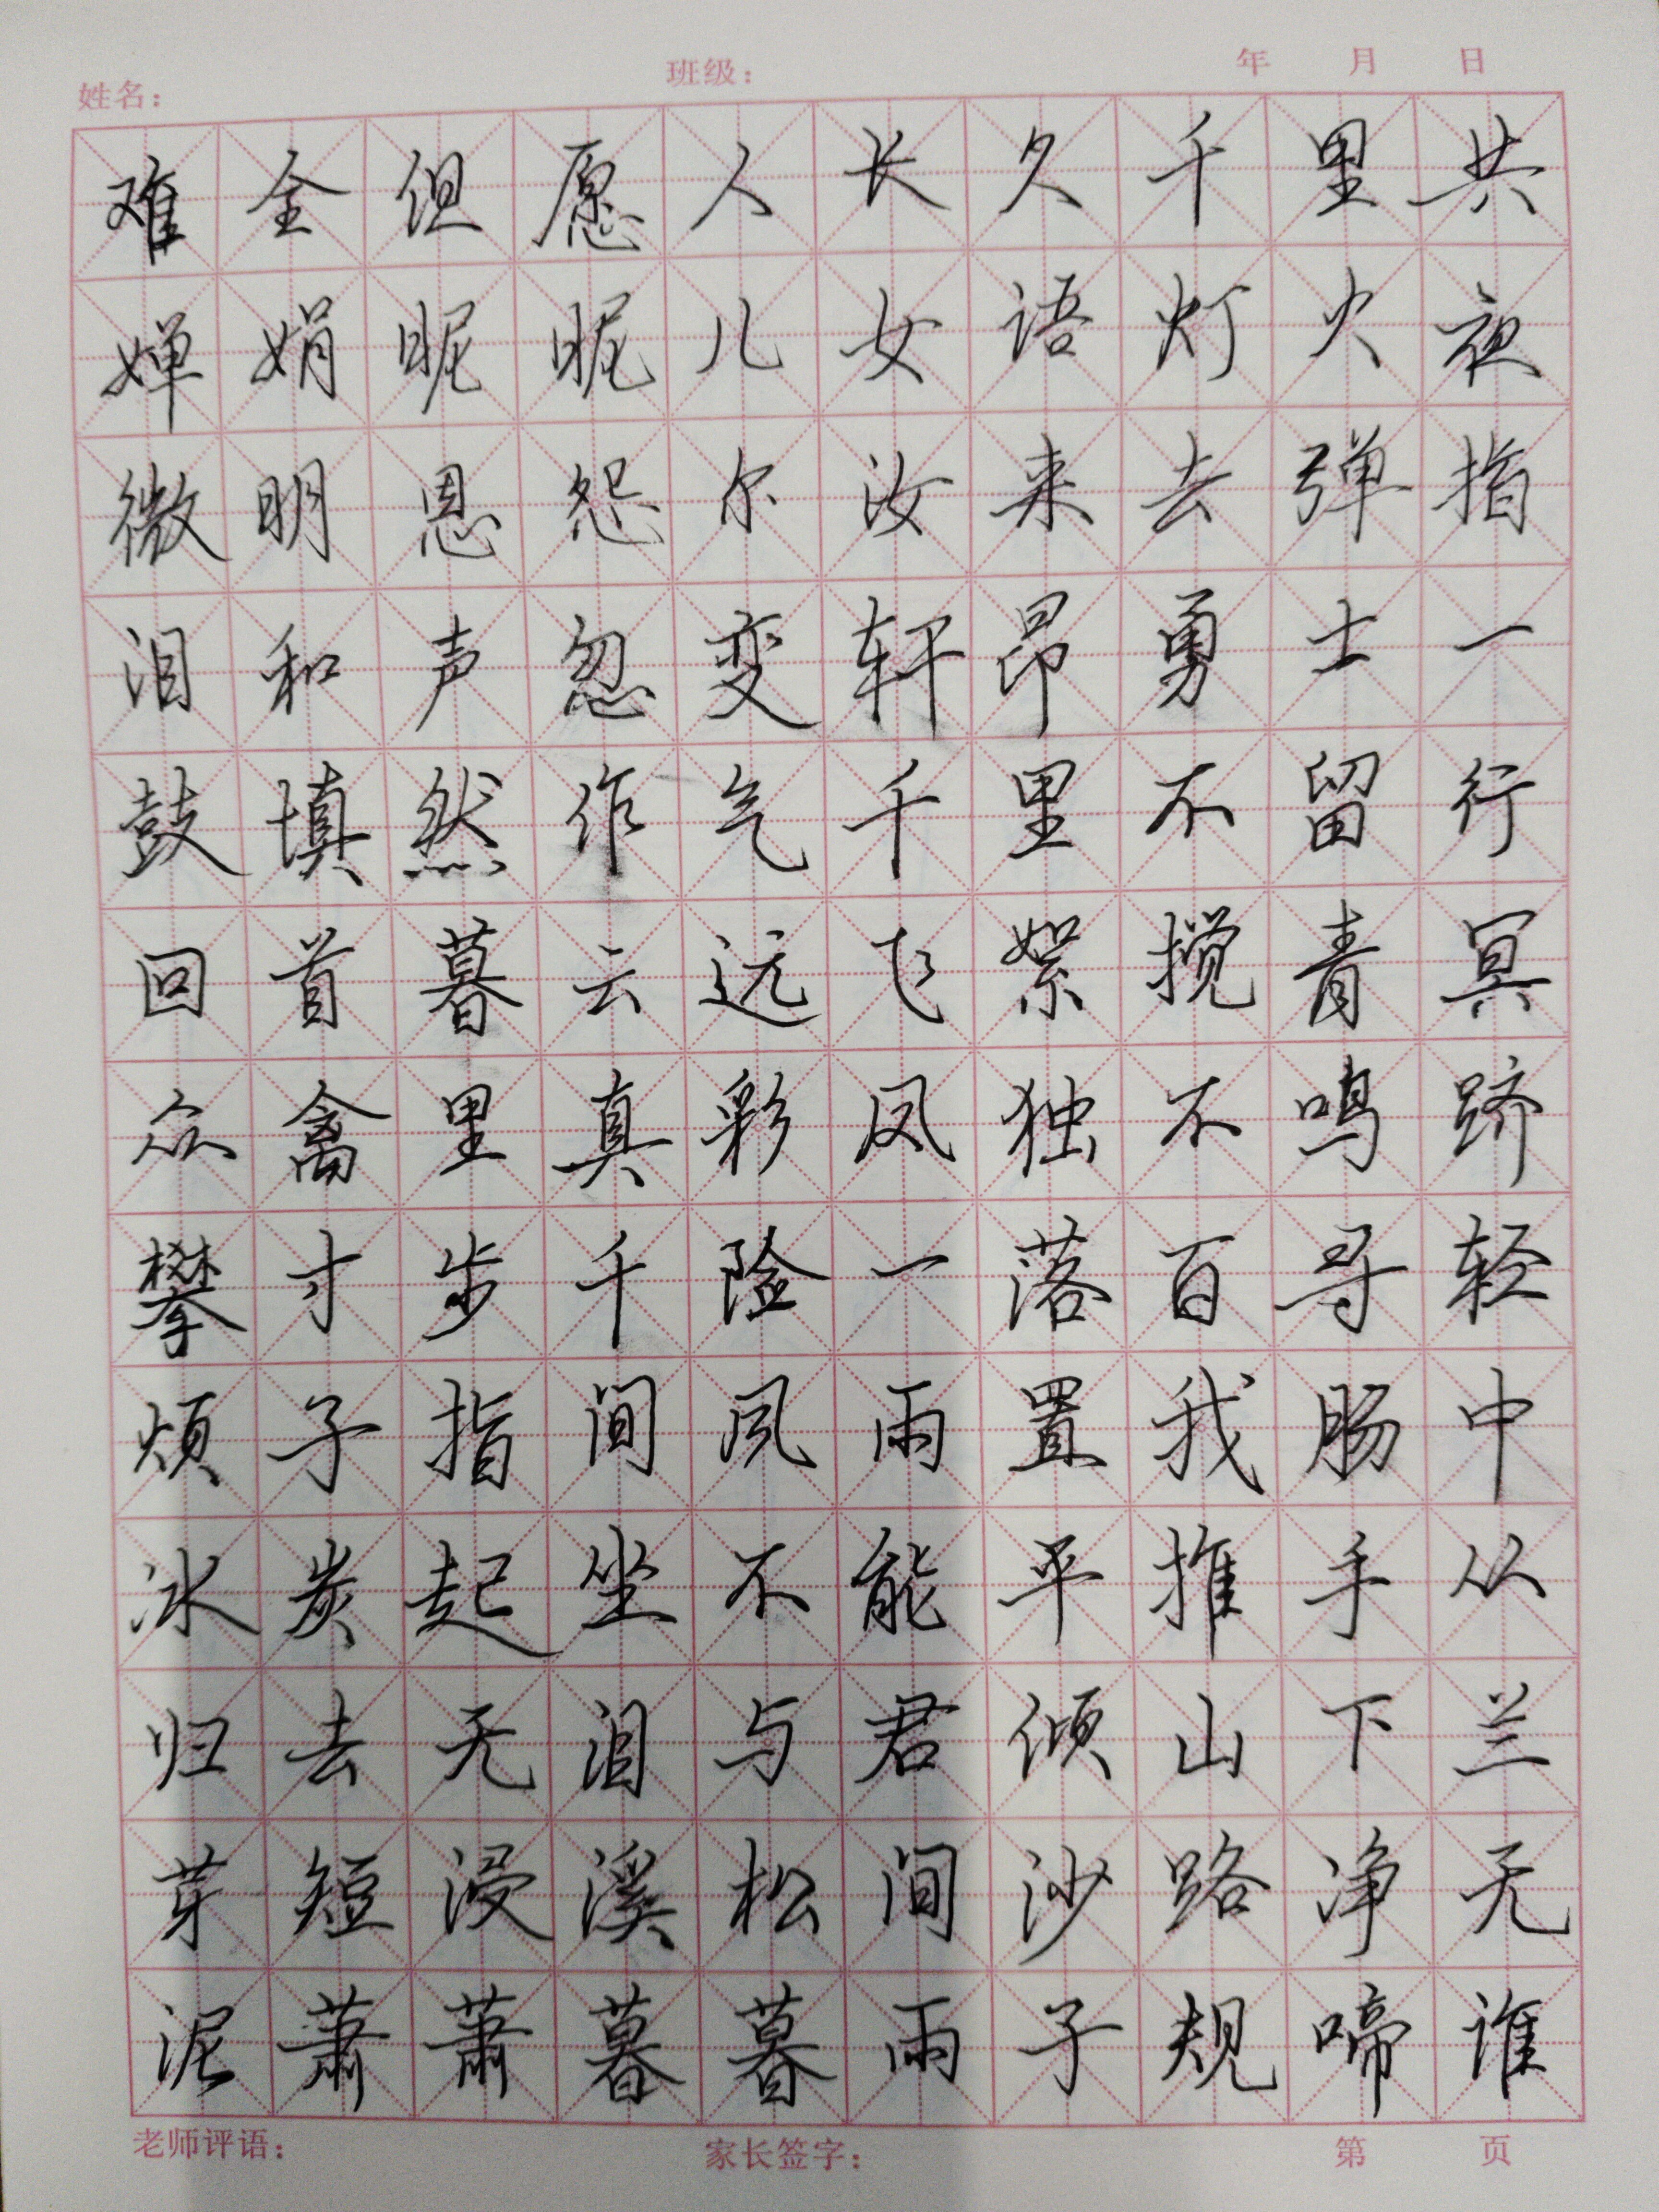 姓名： 班级： 年 月 日
难全但愿人长久千里共
婵娟昵昵儿女语灯火夜
微明恩怨尔汝来去弹指
泪和声忽变轩昂勇士一
鼓填然作气千里不留行
回首暮云远飞絮搅青冥
众禽里真彩凤独不鸣跻
攀寸步千险一落百寻轻
烦子指间风雨置我肠中
冰炭起坐不能平推手从
归去无泪与君倾山下兰
芽短浸溪松间沙路净无
泥萧萧暮暮雨子规啼谁
老师评语： 家长签字： 第 页